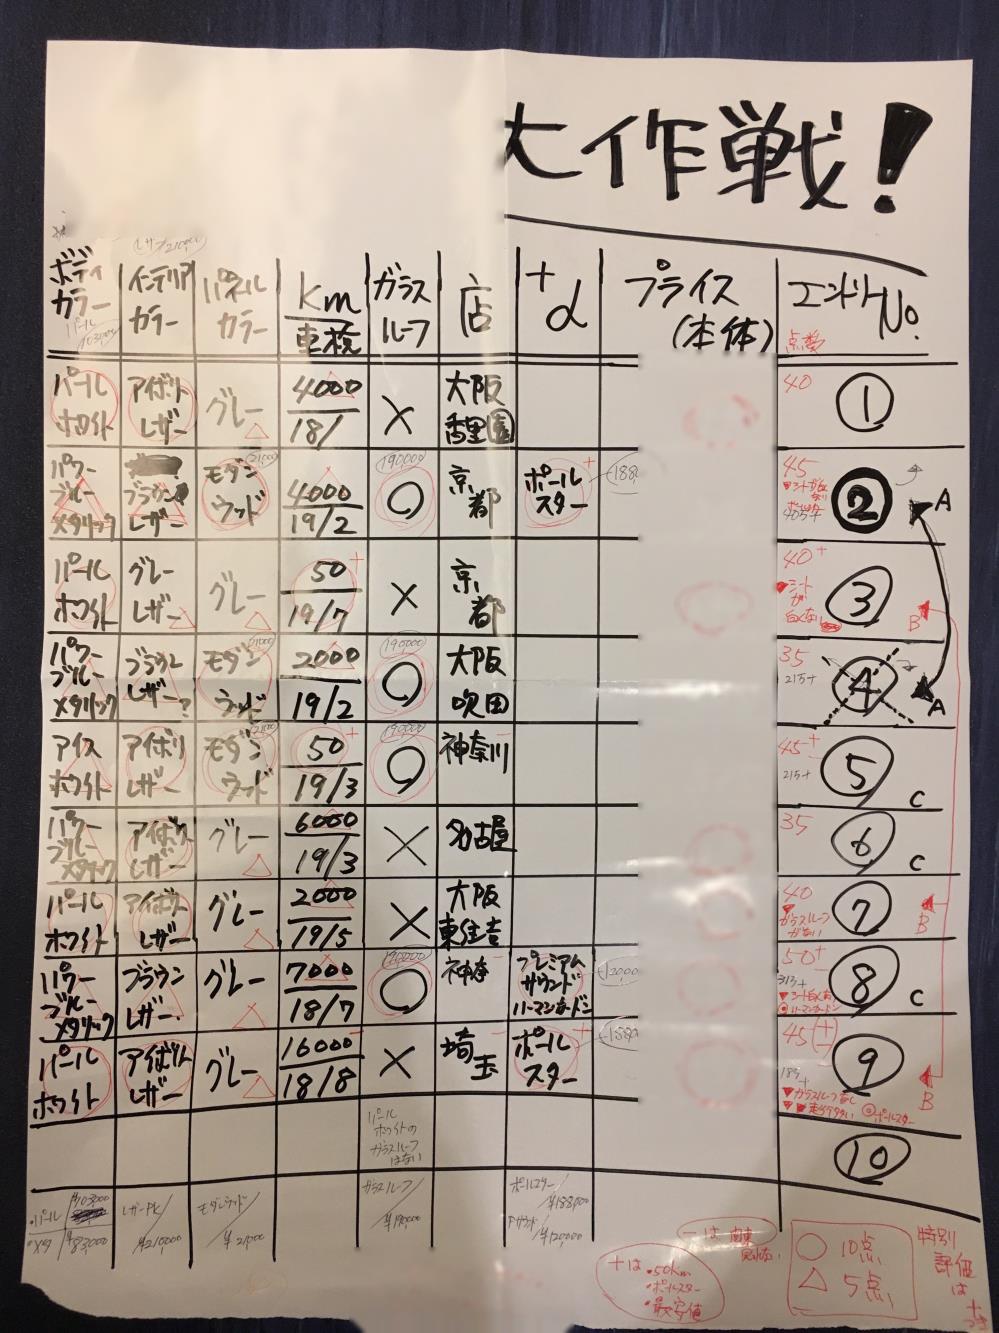 大作戦!
ボディ
カラー
インテリア
カラー
パネル
カラー
km
車検
ガラス
ルーフ
店
+
α
プライス
(本体)
エントリー
No.
点数
パール
ホワイト
アイボリー
レザー
グレー
4000
18/
×
大阪
香里園
40
①
パワー
ブルー
メタリック
ブラウン
レザー
モダン
ウッド
21,000
4000
19/2
190,000
○
京都
ポール
スター
+
188,0
45
②
A
パール
ホワイト
グレー
レザー
グレー
50
19/7
+
×
京都
40+
▼シートが
白くない
③
B
パワー
ブルー
メタリック
ブラウン
レザー?
モダン
ウッド
21,000
2000
19/2
190,000
○
大阪
吹田
35
215+
④
A
アイス
ホワイト
アイボリ
レザー
モダン
ウッド
21,000
50
19/3
+
190,000
○
神奈川
45+
215+
⑤
C
パワー
ブルー
メタリック
アイボリー
レザー
グレー
6000
19/3
×
名古屋
35
⑥
C
パール
ホワイト
アイボリー
レザー
グレー
2000
19/5
×
大阪
東住吉
40
▼
ガラスルーフ
がない
⑦
B
パワー
ブルー
メタリック
ブラウン
レザー
グレー
7000
18/7
190,000
○
神奈
プレミアム
サウンド
ハーマンカードン
50+
313+
▼シート白くない
◎ハーマンカードン
⑧
C
パール
ホワイト
アイボリー
レザー
グレー
16000
18/8
×
埼玉
ポール
スター
45
185+
▼ガラスルーフなし
▼▼走行多い
◎ポールスター
⑨
B
パール
ホワイトの
ガラスルーフ
はない
⑩
・パール
¥103,000
・メタ
¥83,000
レザーPK
¥210,000
モダンウッド
¥21,000
ガラスルーフ
¥190,000
ポールスター
¥188,000
Pサウンド
¥120,000
−は関東
+は
・50km
・ポールスター
・最安値
○ 10点
△ 5点
特別
評価
は
+